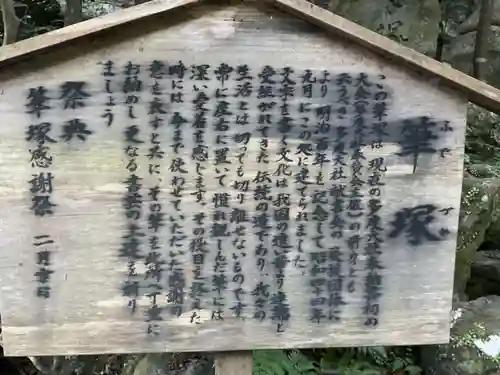 筆塚
ふで
づか
この筆塚は 現在の多賀大社献書祭の
より 明治百年を記念して 昭和四十四年
元月に この処に建てられました。
文字を書く文化は 我国の遠い昔より連綿と
受継がれてきた 伝統の道であり 我々の
生活とは 切っても切り離せないものです。
常に座右に置いて 慣れ親しんだ筆には
深い愛着を感じます。その役目を終えた
時には 今まで使わせていただいた感謝の
意を表すと共に その筆を此の塚に
お納めし 更なる書芸の上達を祈り
ましょう
祭典
筆塚感謝祭 二月